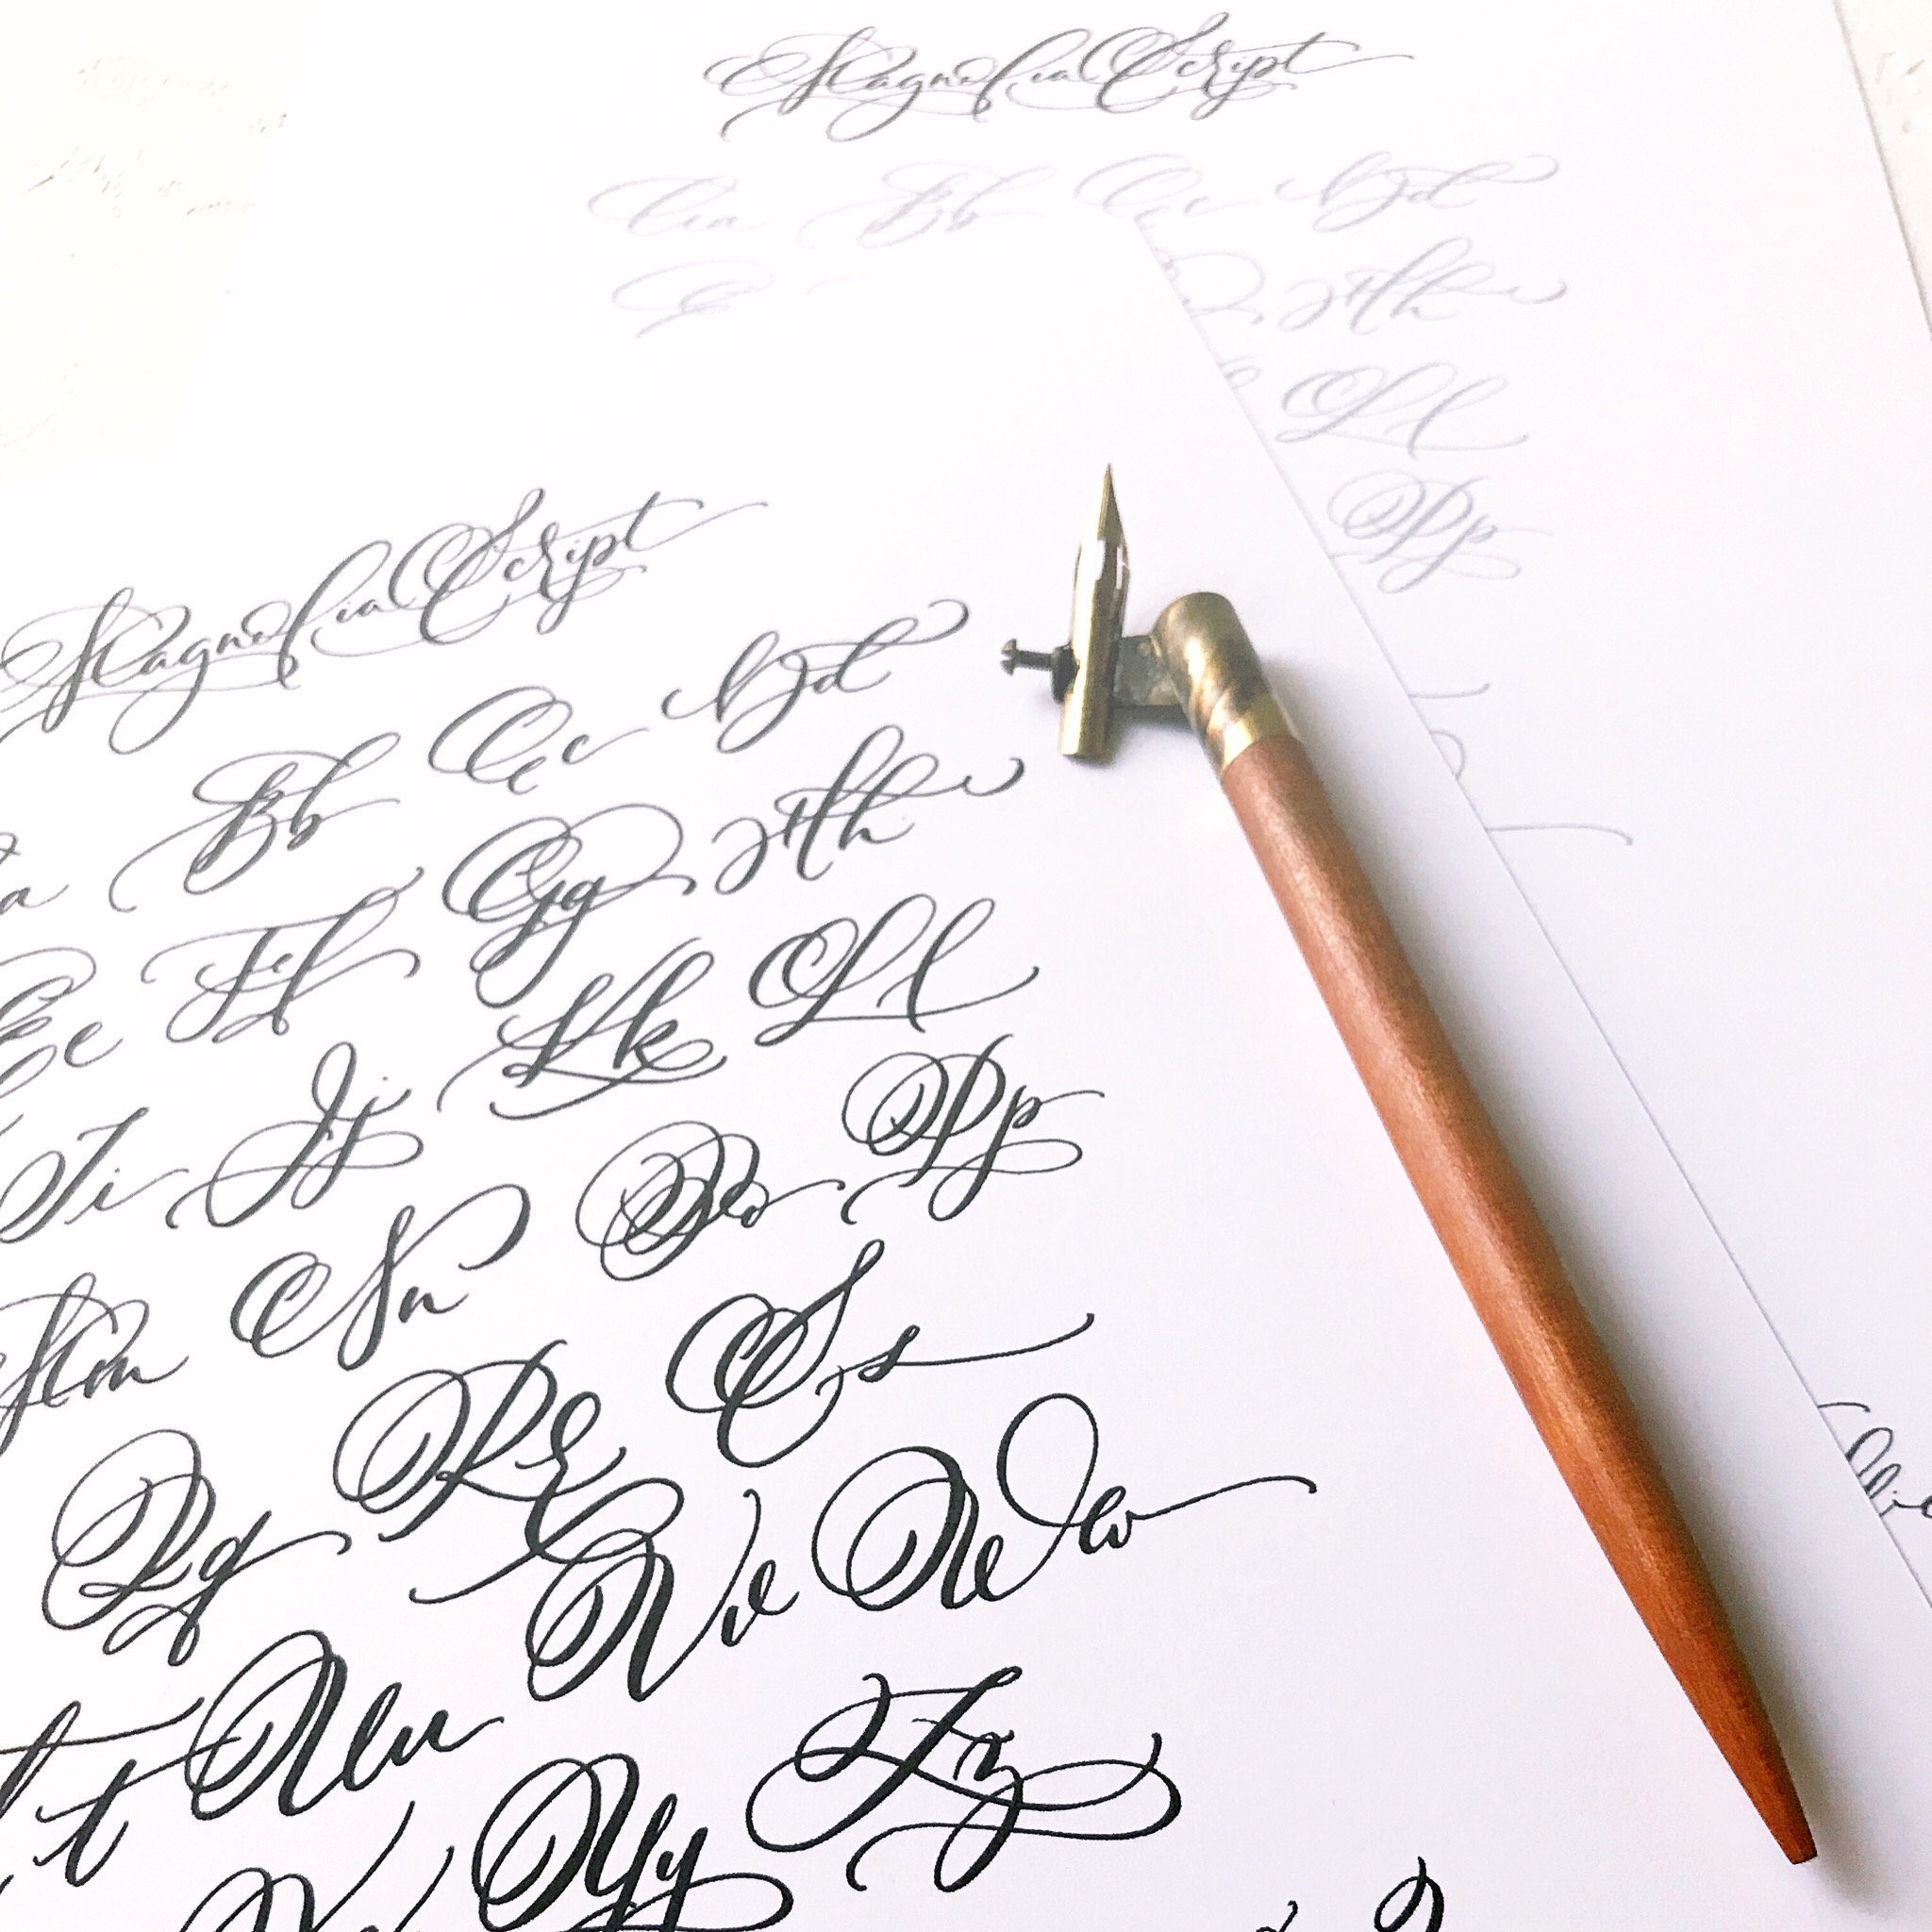 Magnolia Script
Aa Bb Cc Dd
Hh
Ll
Pp
Magnolia Script
a Bb Cc Dd
Ee Ff Gg Hh
Ii Jj Kk Ll
Mm Nn Oo Pp
Qq Rr Ss
t Uu Vv Ww
Yy Zz